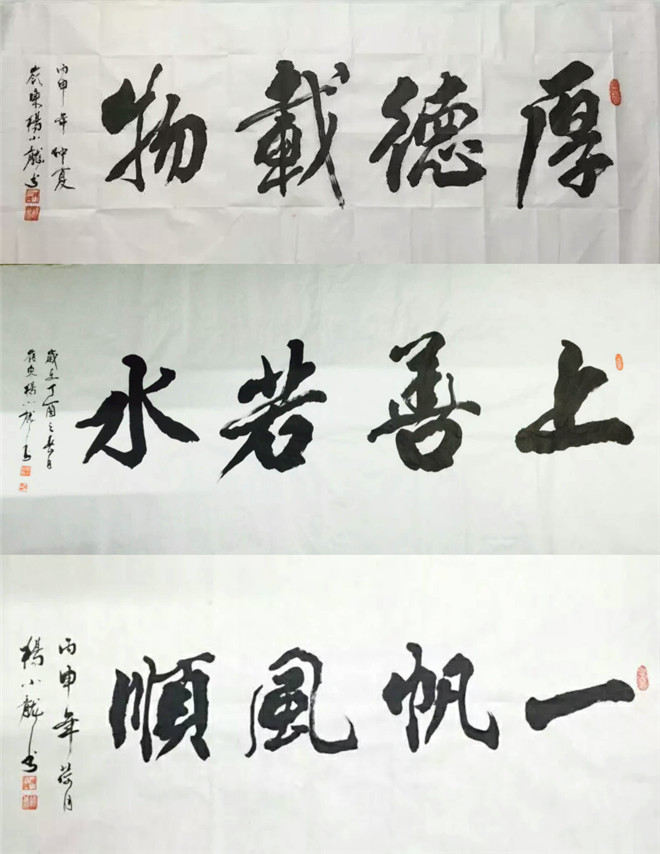 厚德載物
丙申年仲夏
嶺東楊小龍書
上善若水
歲在丁酉之
楊小龍書
一帆風順
丙申年荷月
楊小龍書